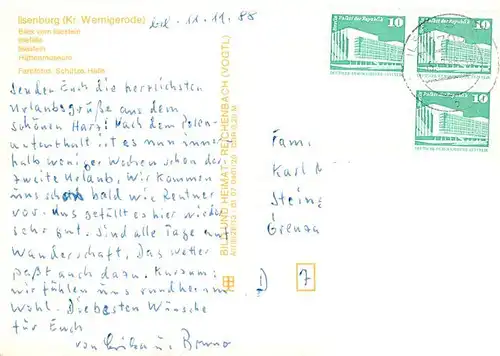 Ilsenburg (Kr. Wernigerode)
Blick vom Ilsestein
Ilsefälle
Ilsestein
Hüttenmuseum
Farbfotos: Schütze, Halle
d. 11.11.88
Senden Euch die herzlichsten
Urlaubsgrüße aus dem
schönen Harz! Nach dem Polen-
aufenthalt ist es nun inner-
halb weniger Wochen schon der
zweite Urlaub. Wir kommen
uns schon bald wie Rentner
vor. Uns gefällt es hier wieder
sehr gut. Sind alle Tage auf
Wanderschaft. Das Wetter
paßt auch dazu. Kurzum:
wir fühlen uns rundherum
wohl. Die besten Wünsche
für Euch
von Erika u. Bruno
BILD UND HEIMAT REICHENBACH (VOGTL)
Palast der Republik 10
Palast der Republik 10
Palast der Republik 10
Fam.
Karl
Steine
Grenza
7